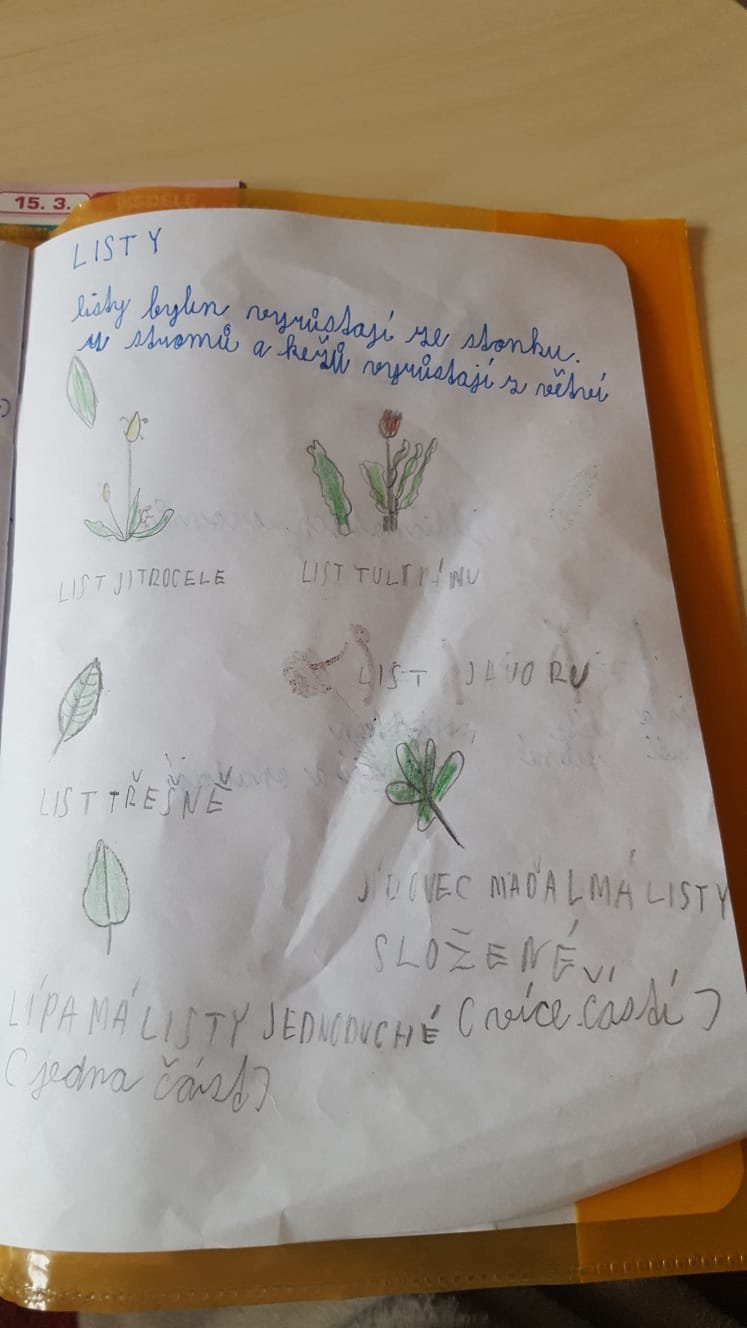 15. 3.
NEDĚLE
LISTY
listy bylin vyrůstají ze stonku.
u stromů a keřů vyrůstají z větví
LIST JITROCELE
LIST TULIPÁNU
LIST JAVORU
LIST TŘEŠNĚ
JÍROVEC MAĎAL MÁ LISTY
SLOŽENÉ
(více částí)
LÍPA MÁ LISTY JEDNODUCHÉ
(jedna část)